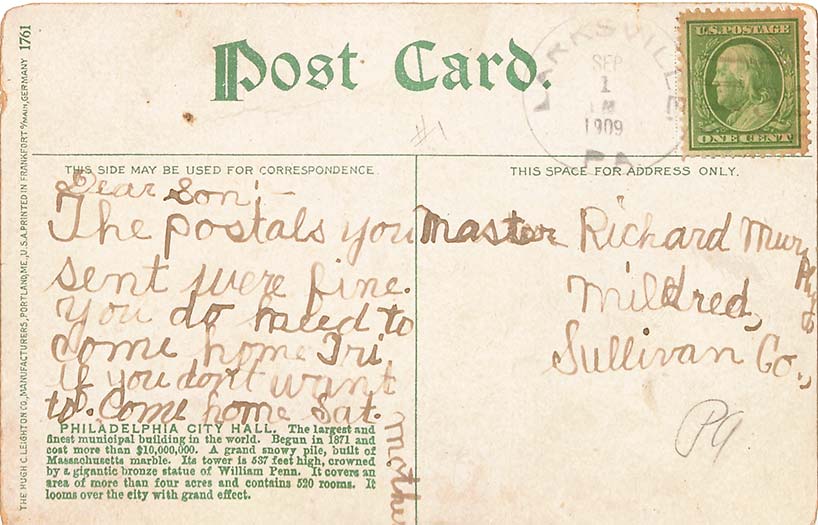 Post Card.
LARKSVILLE
SEP
1
AM
1909
PA.
U.S. POSTAGE
ONE CENT
#1
THIS SIDE MAY BE USED FOR CORRESPONDENCE
THIS SPACE FOR ADDRESS ONLY.
Dear Son:-
The postals you
sent were fine.
You do need to
come home Fri.
if you don't want
to. Come home Sat.
Mother
Master Richard Murphy
Mildred,
Sullivan Co.,
Pa
PHILADELPHIA CITY HALL. The largest and
finest municipal building in the world. Begun in 1871 and
cost more than $10,000,000. A grand snowy pile, built of
Massachusetts marble. Its tower is 537 feet high, crowned
by a gigantic bronze statue of William Penn. It covers an
area of more than four acres and contains 520 rooms. It
looms over the city with grand effect.
THE HUGH C. LEIGHTON CO., MANUFACTURERS, PORTLAND, ME., U.S.A. PRINTED IN FRANKFORT o/MAIN, GERMANY 1761